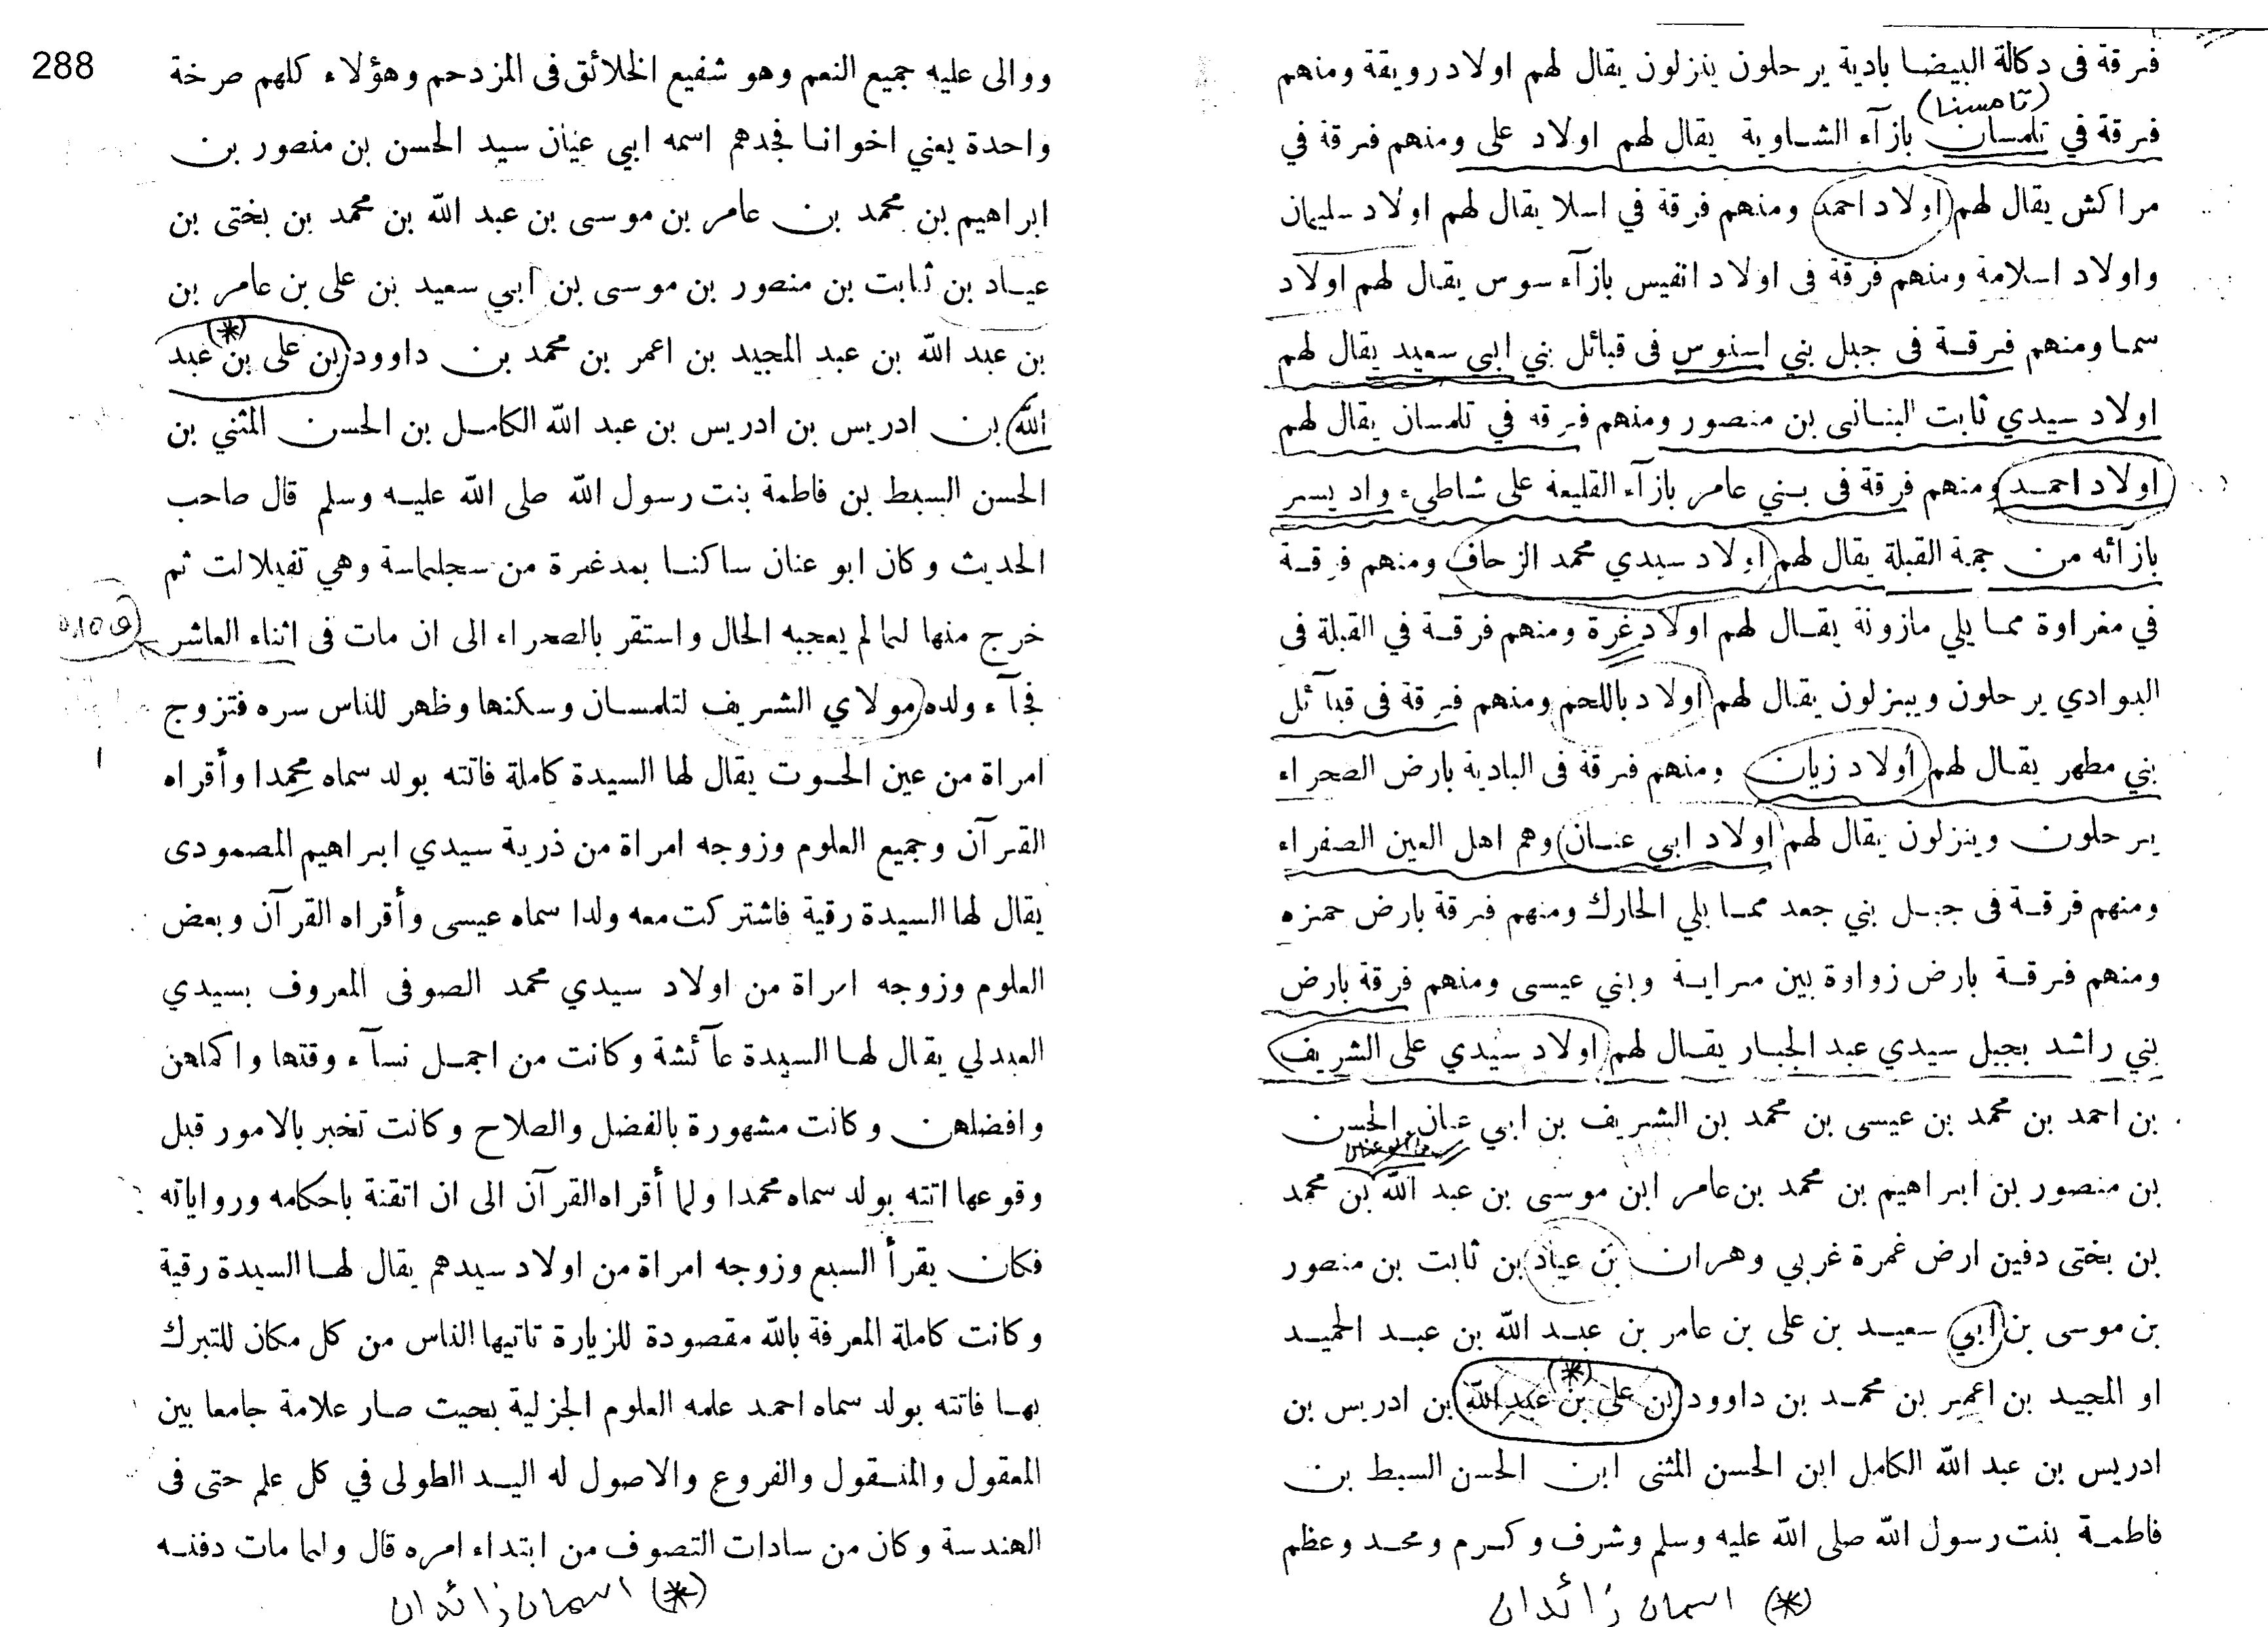 فرقة فى دكالة البيضا بادية يرحلون ينزلون يقال لهم اولاد رويقة ومنهم
(تامسنا)
فرقة في تلمسان بازآء الشاوية يقال لهم اولاد على ومنهم فرقة في
مراكش يقال لهم اولاد احمد ومنهم فرقة في اسلا يقال لهم اولاد سليمان
واولاد اسلامة ومنهم فرقة فى اولاد انفيس بازآء سوس يقال لهم اولاد
سما ومنهم فرقة فى جبل بني اسنوس فى قبائل بني ابي سعيد يقال لهم
اولاد سيدي ثابت البنانى بن منصور ومنهم فرقه في تلمسان يقال لهم
اولاد احمد ومنهم فرقة فى بني عامر بازآء القليعة على شاطيء واد يسر
بازائه من جهة القبلة يقال لهم اولاد سيدي محمد الزحاف ومنهم فرقة
في مغراوة مما يلي مازونة يقال لهم اولاد غرة ومنهم فرقة في القبلة فى
البوادي يرحلون وينزلون يقال لهم اولاد باللحم ومنهم فرقة فى قبآئل
بني مطهر يقال لهم أولاد زيان ومنهم فرقة فى البادية بارض الصحراء
يرحلون وينزلون يقال لهم اولاد ابي عنان وهم اهل العين الصفراء
ومنهم فرقة فى جبل بني جعد مما يلي الحارك ومنهم فرقة بارض حمزه
ومنهم فرقة بارض زواوة بين مراية وبني عيسى ومنهم فرقة بارض
بني راشد بجبل سيدي عبد الجبار يقال لهم اولاد سيدي على الشريف
بن احمد بن محمد بن عيسى بن محمد بن الشريف بن ابي عنان الحسن
بن منصور بن ابراهيم بن محمد بن عامر ابن موسى بن عبد الله بن محمد
بن بختى دفين ارض غمرة غربي وهران بن عياد بن ثابت بن منصور
بن موسى بن ابي سعيد بن على بن عامر بن عبد الله بن عبد الحميد
او المجيد بن اعمر بن محمد بن داوود بن على بن عبد الله بن ادريس بن
(*)
ادريس بن عبد الله الكامل ابن الحسن المثنى ابن الحسن السبط بن
فاطمة بنت رسول الله صلى الله عليه وسلم وشرف وكرم ومجد وعظم
(*) اسمان زائدان
288
ووالى عليه جميع النعم وهو شفيع الخلائق فى المزدحم وهؤلاء كلهم صرخة
واحدة يعني اخوانا فجدهم اسمه ابي عنان سيد الحسن بن منصور بن
ابراهيم بن محمد بن عامر بن موسى بن عبد الله بن محمد بن بختى بن
عياد بن ثابت بن منصور بن موسى بن ابي سعيد بن على بن عامر بن
بن عبد الله بن عبد المجيد بن اعمر بن محمد بن داوود بن على بن عبد
(*)
الله بن ادريس بن ادريس بن عبد الله الكامل بن الحسن المثني بن
الحسن السبط بن فاطمة بنت رسول الله صلى الله عليه وسلم قال صاحب
الحديث وكان ابو عنان ساكنا بمدغرة من سجلماسة وهي تفيلالت ثم
خرج منها لما لم يعجبه الحال واستقر بالصحراء الى ان مات فى اثناء العاشر
فجآء ولده مولاي الشريف لتلمسان وسكنها وظهر للناس سره فتزوج
امراة من عين الحوت يقال لها السيدة كاملة فاتته بولد سماه محمدا وأقراه
القرآن وجميع العلوم وزوجه امراة من ذرية سيدي ابراهيم المصمودى
يقال لها السيدة رقية فاشتركت معه ولدا سماه عيسى وأقراه القرآن وبعض
العلوم وزوجه امراة من اولاد سيدي محمد الصوفى المعروف بسيدي
العبدلي يقال لها السيدة عآئشة وكانت من اجمل نسآء وقتها واكملهن
وافضلهن وكانت مشهورة بالفضل والصلاح وكانت تخبر بالامور قبل
وقوعها اتته بولد سماه محمدا ولما أقراه القرآن الى ان اتقنة باحكامه ورواياته
فكان يقرأ السبع وزوجه امراة من اولاد سيدهم يقال لها السيدة رقية
وكانت كاملة المعرفة بالله مقصودة للزيارة تاتيها الناس من كل مكان للتبرك
بها فاتته بولد سماه احمد علمه العلوم الجزلية بحيت صار علامة جامعا بين
المعقول والمنقول والفروع والاصول له اليد الطولى في كل علم حتى فى
الهندسة وكان من سادات التصوف من ابتداء امره قال ولما مات دفنه
(*) اسمان زائدان